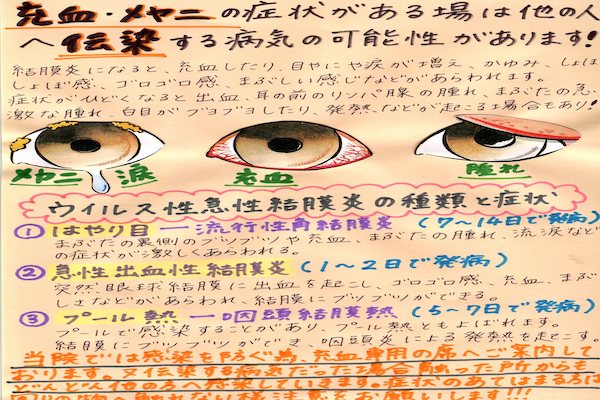 充血・メヤニの症状がある場は他の人
へ伝染する病気の可能性があります!
結膜炎になると、充血したり、目やにや涙が増え、かゆみ、しょぼ
しょぼ感、ゴロゴロ感、まぶしい感じなどがあらわれます。
症状がひどくなると出血、耳の前のリンパ腺の腫れ、まぶたの急
激な腫れ、白目がブヨブヨしたり、発熱などが起こる場合もあり!
メヤニ 涙 充血 腫れ
ウイルス性急性結膜炎の種類と症状
① はやり目ー流行性角結膜炎 (7〜14日で発病)
まぶたの裏側のブツブツや充血、まぶたの腫れ、流涙など
の症状が激しくあらわる。
② 急性出血性結膜炎 (1〜2日で発病)
突然、眼球結膜に出血を起こし、ゴロゴロ感、充血、まぶ
しさなどがあらわれ、結膜にブツブツができる。
③ プール熱ー咽頭結膜熱 (5〜7日で発病)
プールで感染することがあり、プール熱ともよばれます。
結膜にブツブツができ、咽頭炎による発熱を起こす。
当院では感染を防ぐ為、充血専用の席へご案内して
おります。又伝染する病気だった場合触った所からも
どんどん他の方へ感染していきます。症状のあてはまる方は
物へ触れない様注意をお願いします!!!